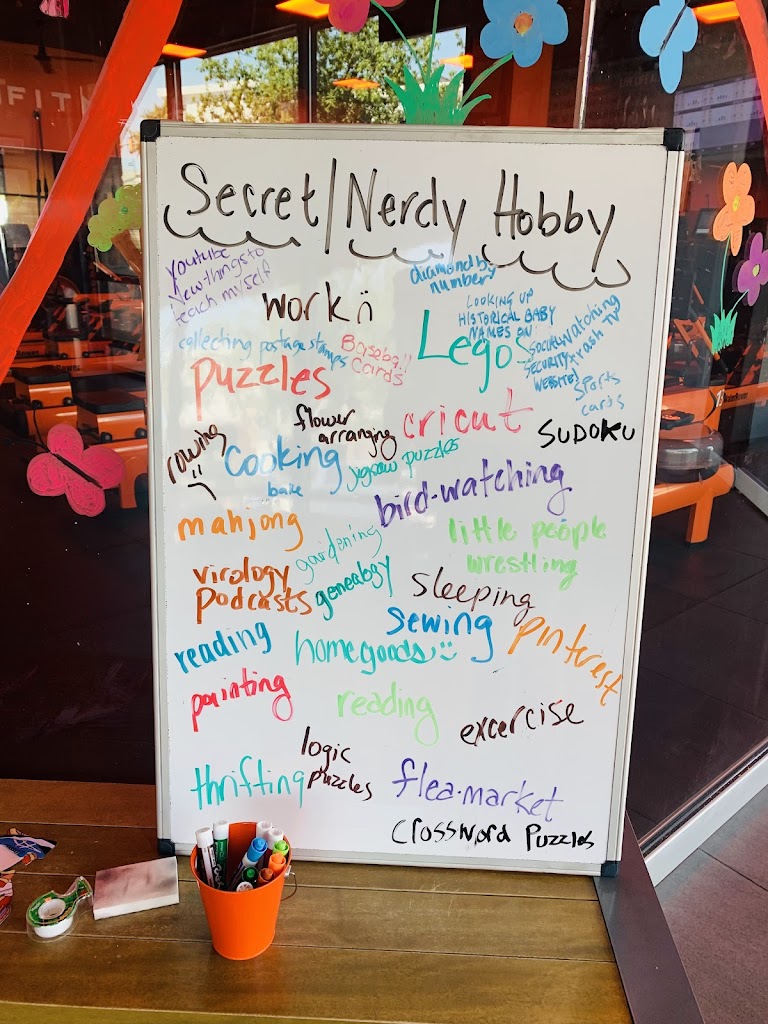 FIT
Secret/Nerdy Hobby
youtube
New things to
teach myself
diamond by
number
work
LOOKING UP
HISTORICAL BABY
NAMES ON
SOCIAL
SECURITY
WEBSITE!
watching
trash TV
collecting postage stamps
Baseball
Cards
Legos
sports
cards
puzzles
flower
arranging
cricut
SUDOKU
rowing
cooking
bake
jigsaw puzzles
bird-watching
mahjong
gardening
little people
wrestling
virology
Podcasts
genealogy
sleeping
sewing
pinterest
reading
homegoods
painting
reading
excercise
logic
puzzles
thrifting
flea-market
Crossword Puzzles